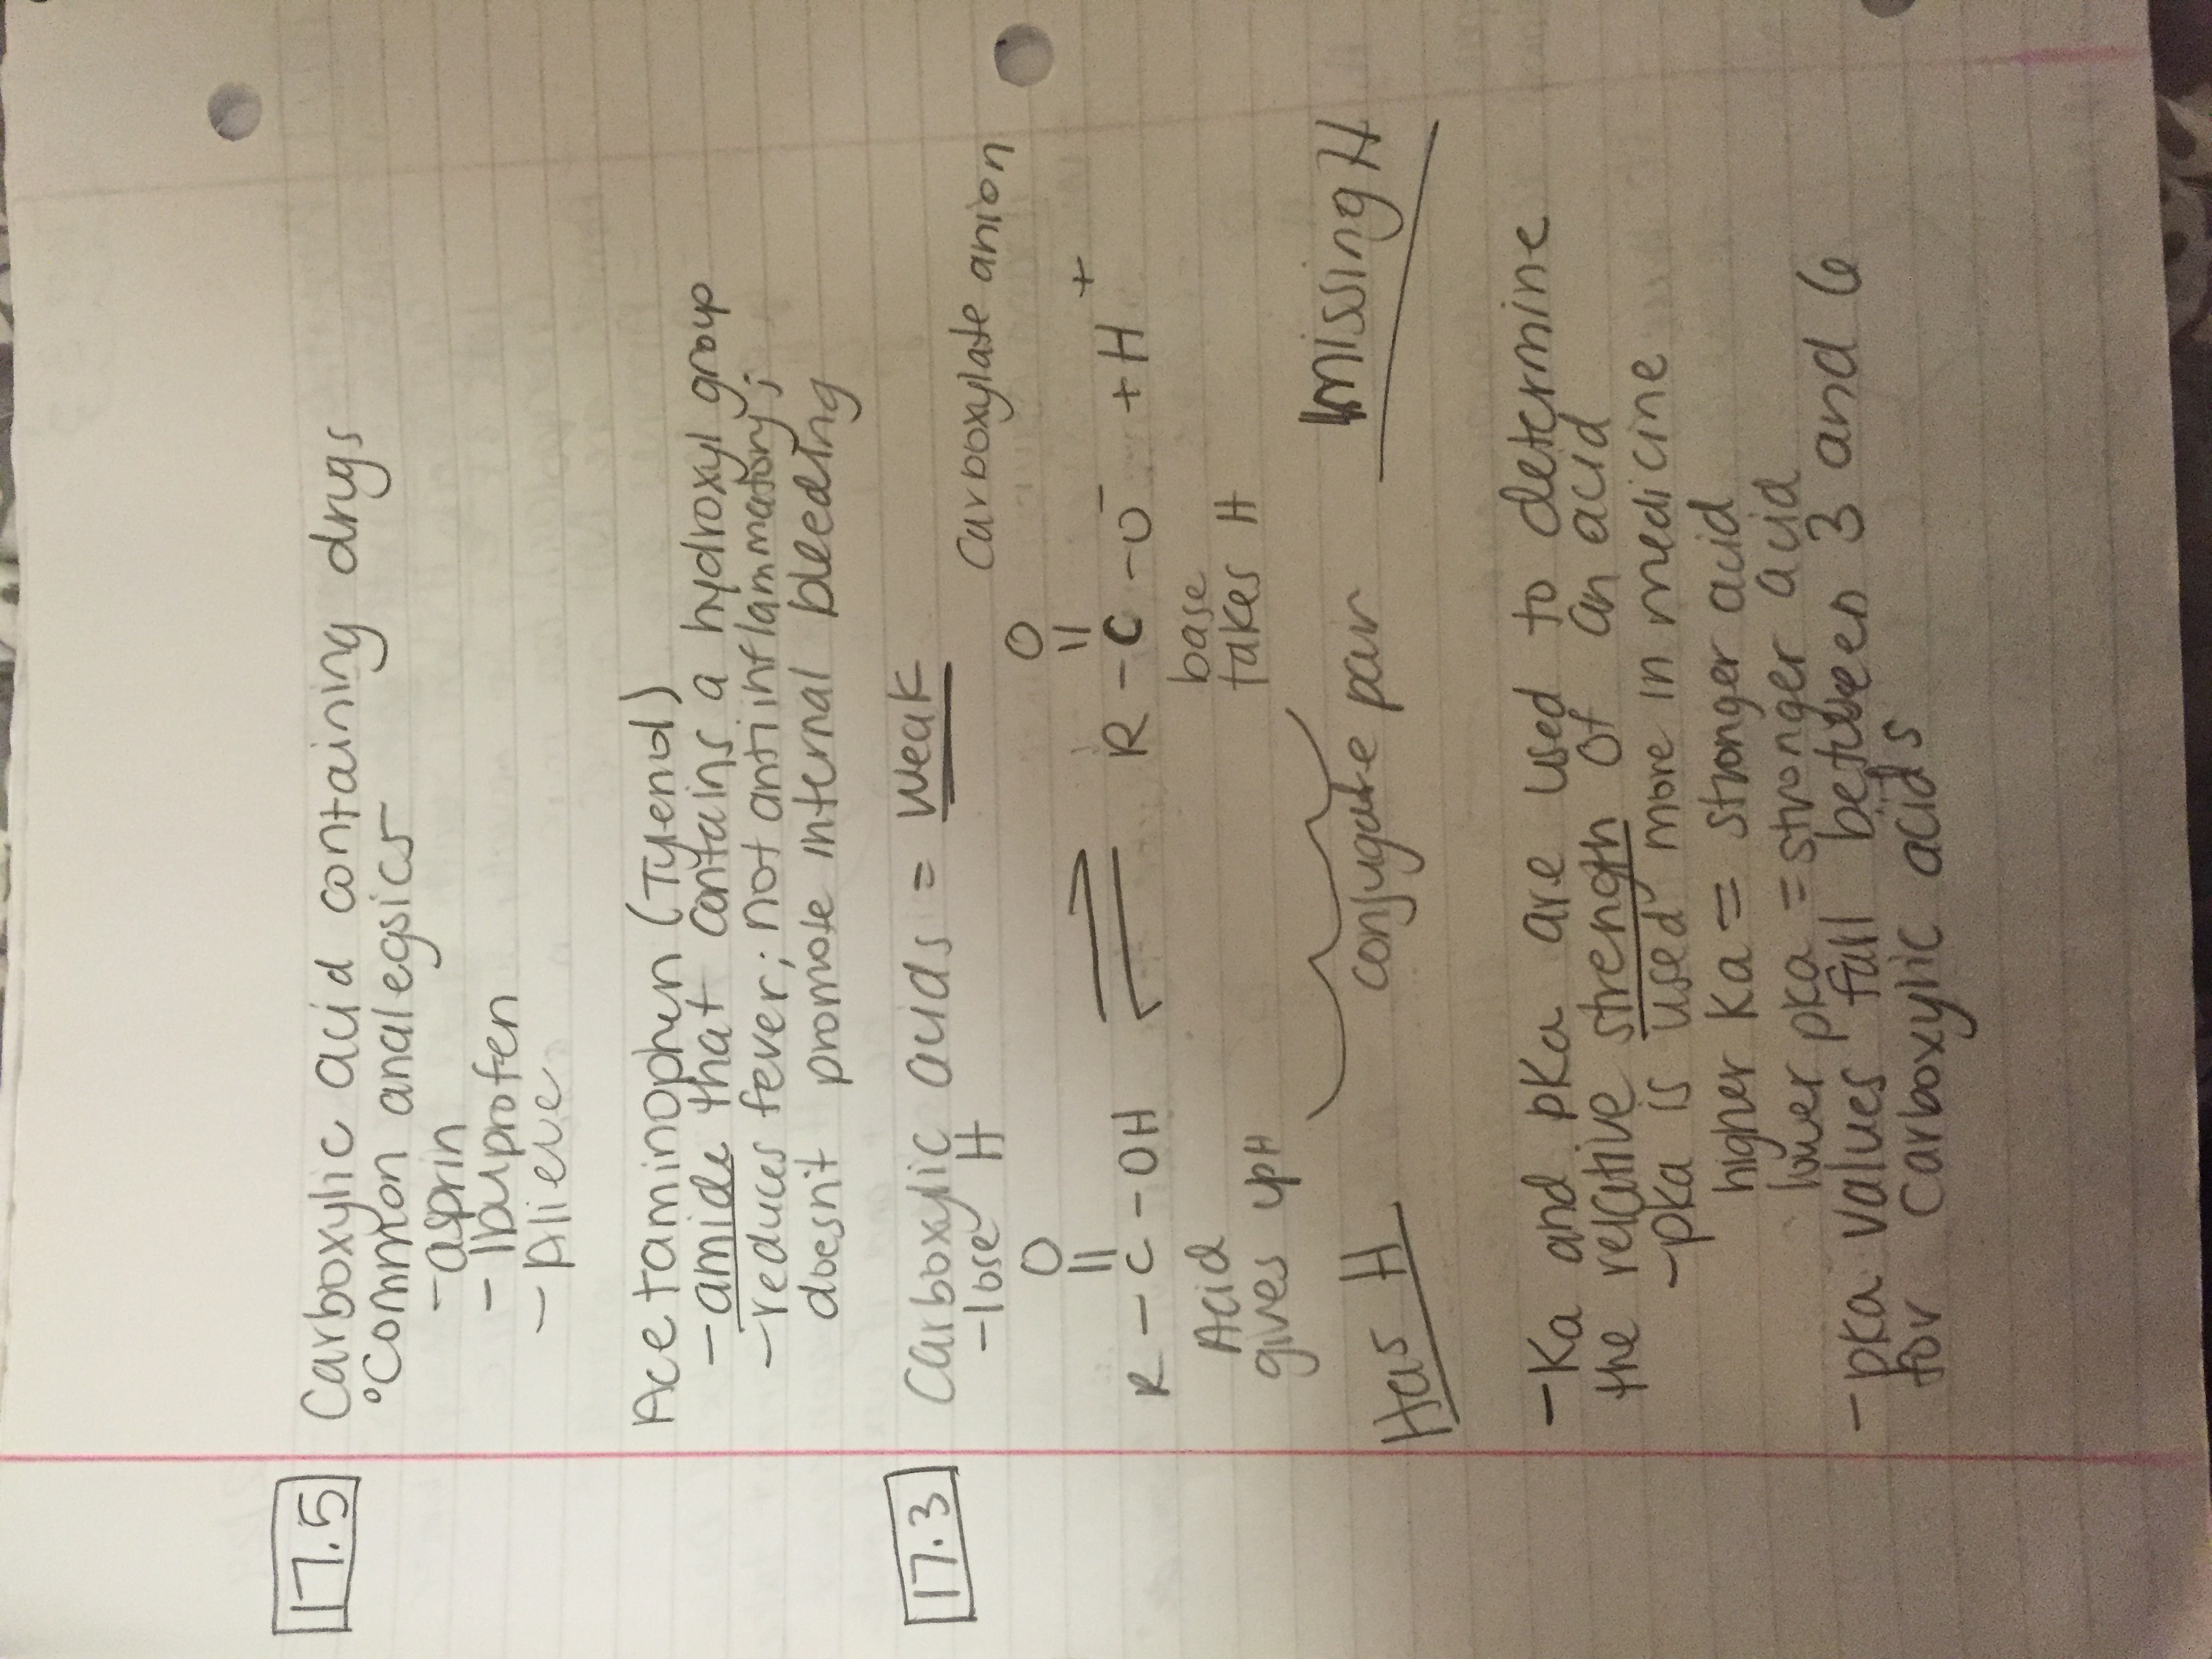 17.5 Carboxylic acid containing drugs
°Common analegsics
-asprin
- Ibuprofen
- Alieve
Acetaminophen (Tylenol)
-amide that contains a hydroxyl group
-reduces fever; not antiinflammatory;
doesnit promote internal bleeding
17.3 Carboxylic acids = weak
-lose H
Carboxylate anion
O O
|| ||
R-C-OH ⇌ R-C-O⁻ + H⁺
Acid base
gives up H takes H
Has H conjugate pair missing H
-Ka and pKa are used to determine
the relative strength of an acid
-pka is used more in medicine
higher Ka = stronger acid
lower pka = stronger acid
-pka values fall between 3 and 6
for carboxylic acids